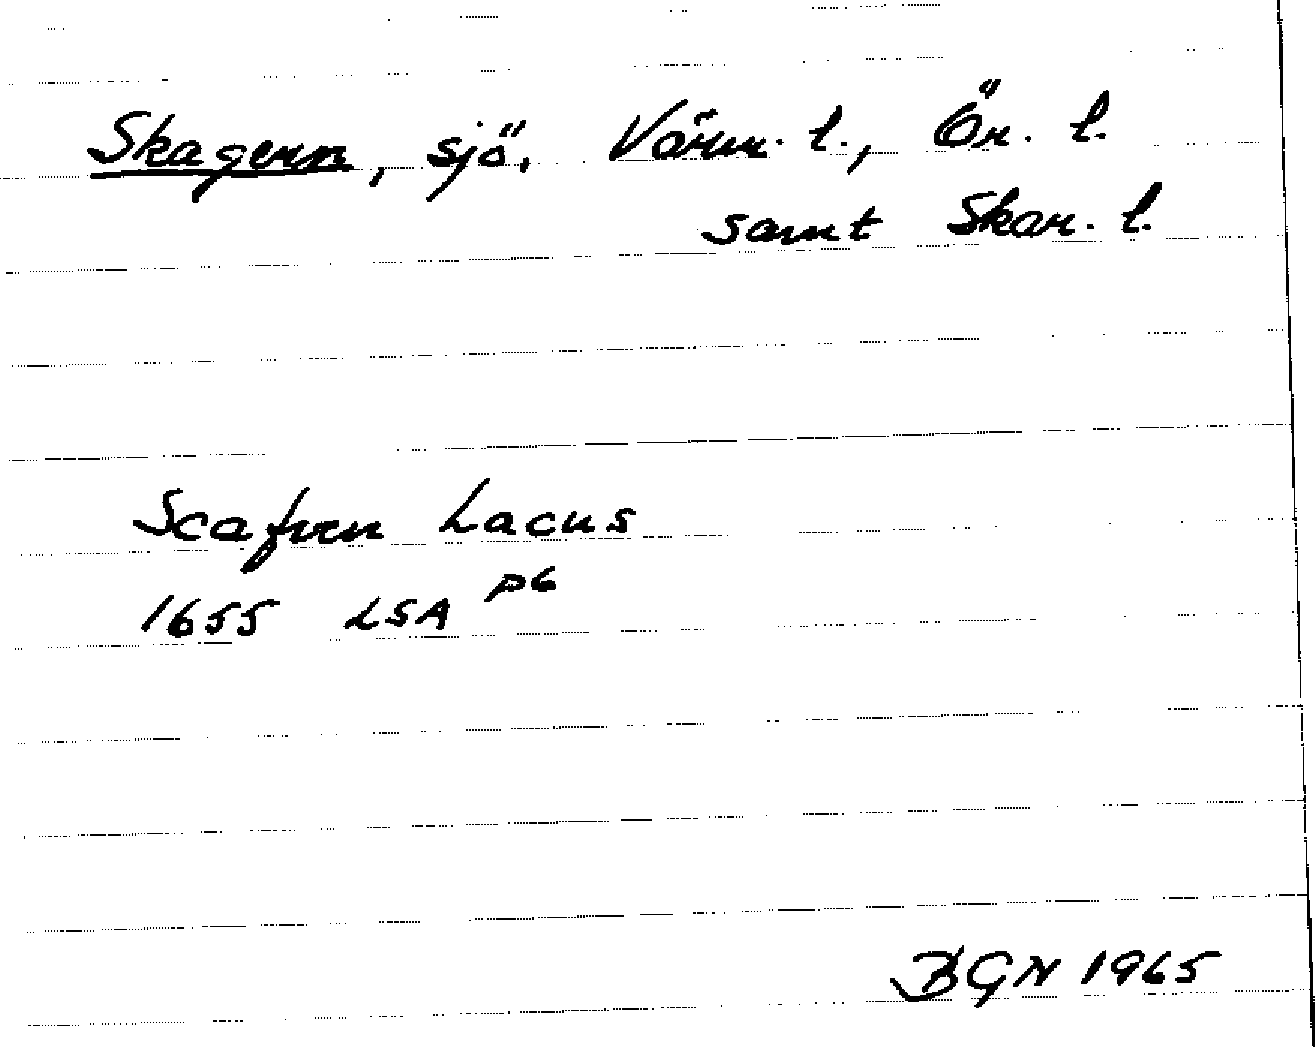 Skagern, sjö, Värm. l., Ör. l.
samt Skar. l.
Scafren Lacus
1655 LSA P6
BGN 1965